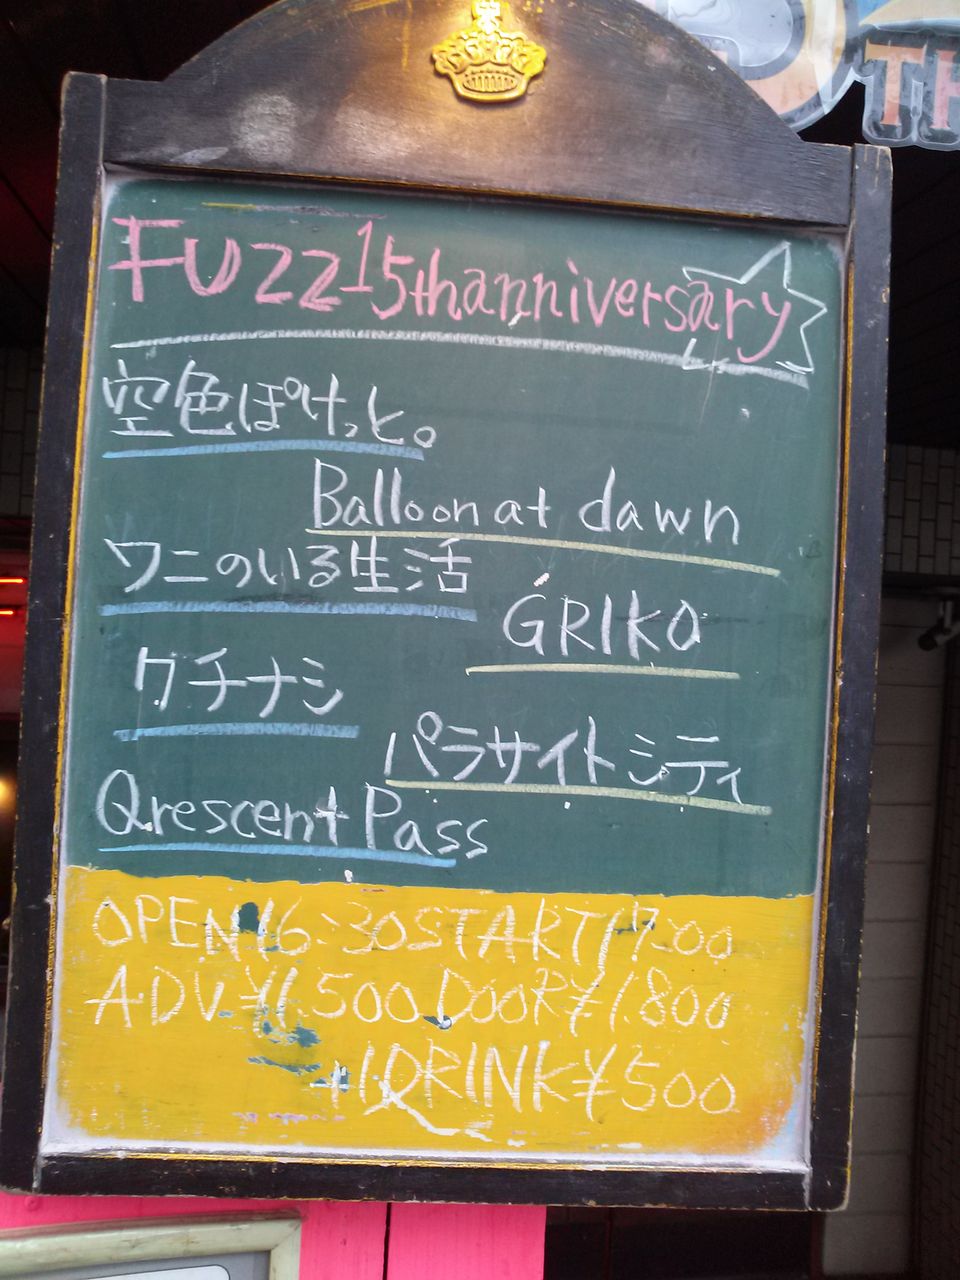 Fuzz 15th anniversary
空色ぽけっと。
Balloon at dawn
ワニのいる生活
GRIKO
クチナシ
パラサイトシティ
Qrescent Pass
OPEN 16:30 START 17:00
ADV ¥1,500 DOOR ¥1,800
+1DRINK ¥500
TH